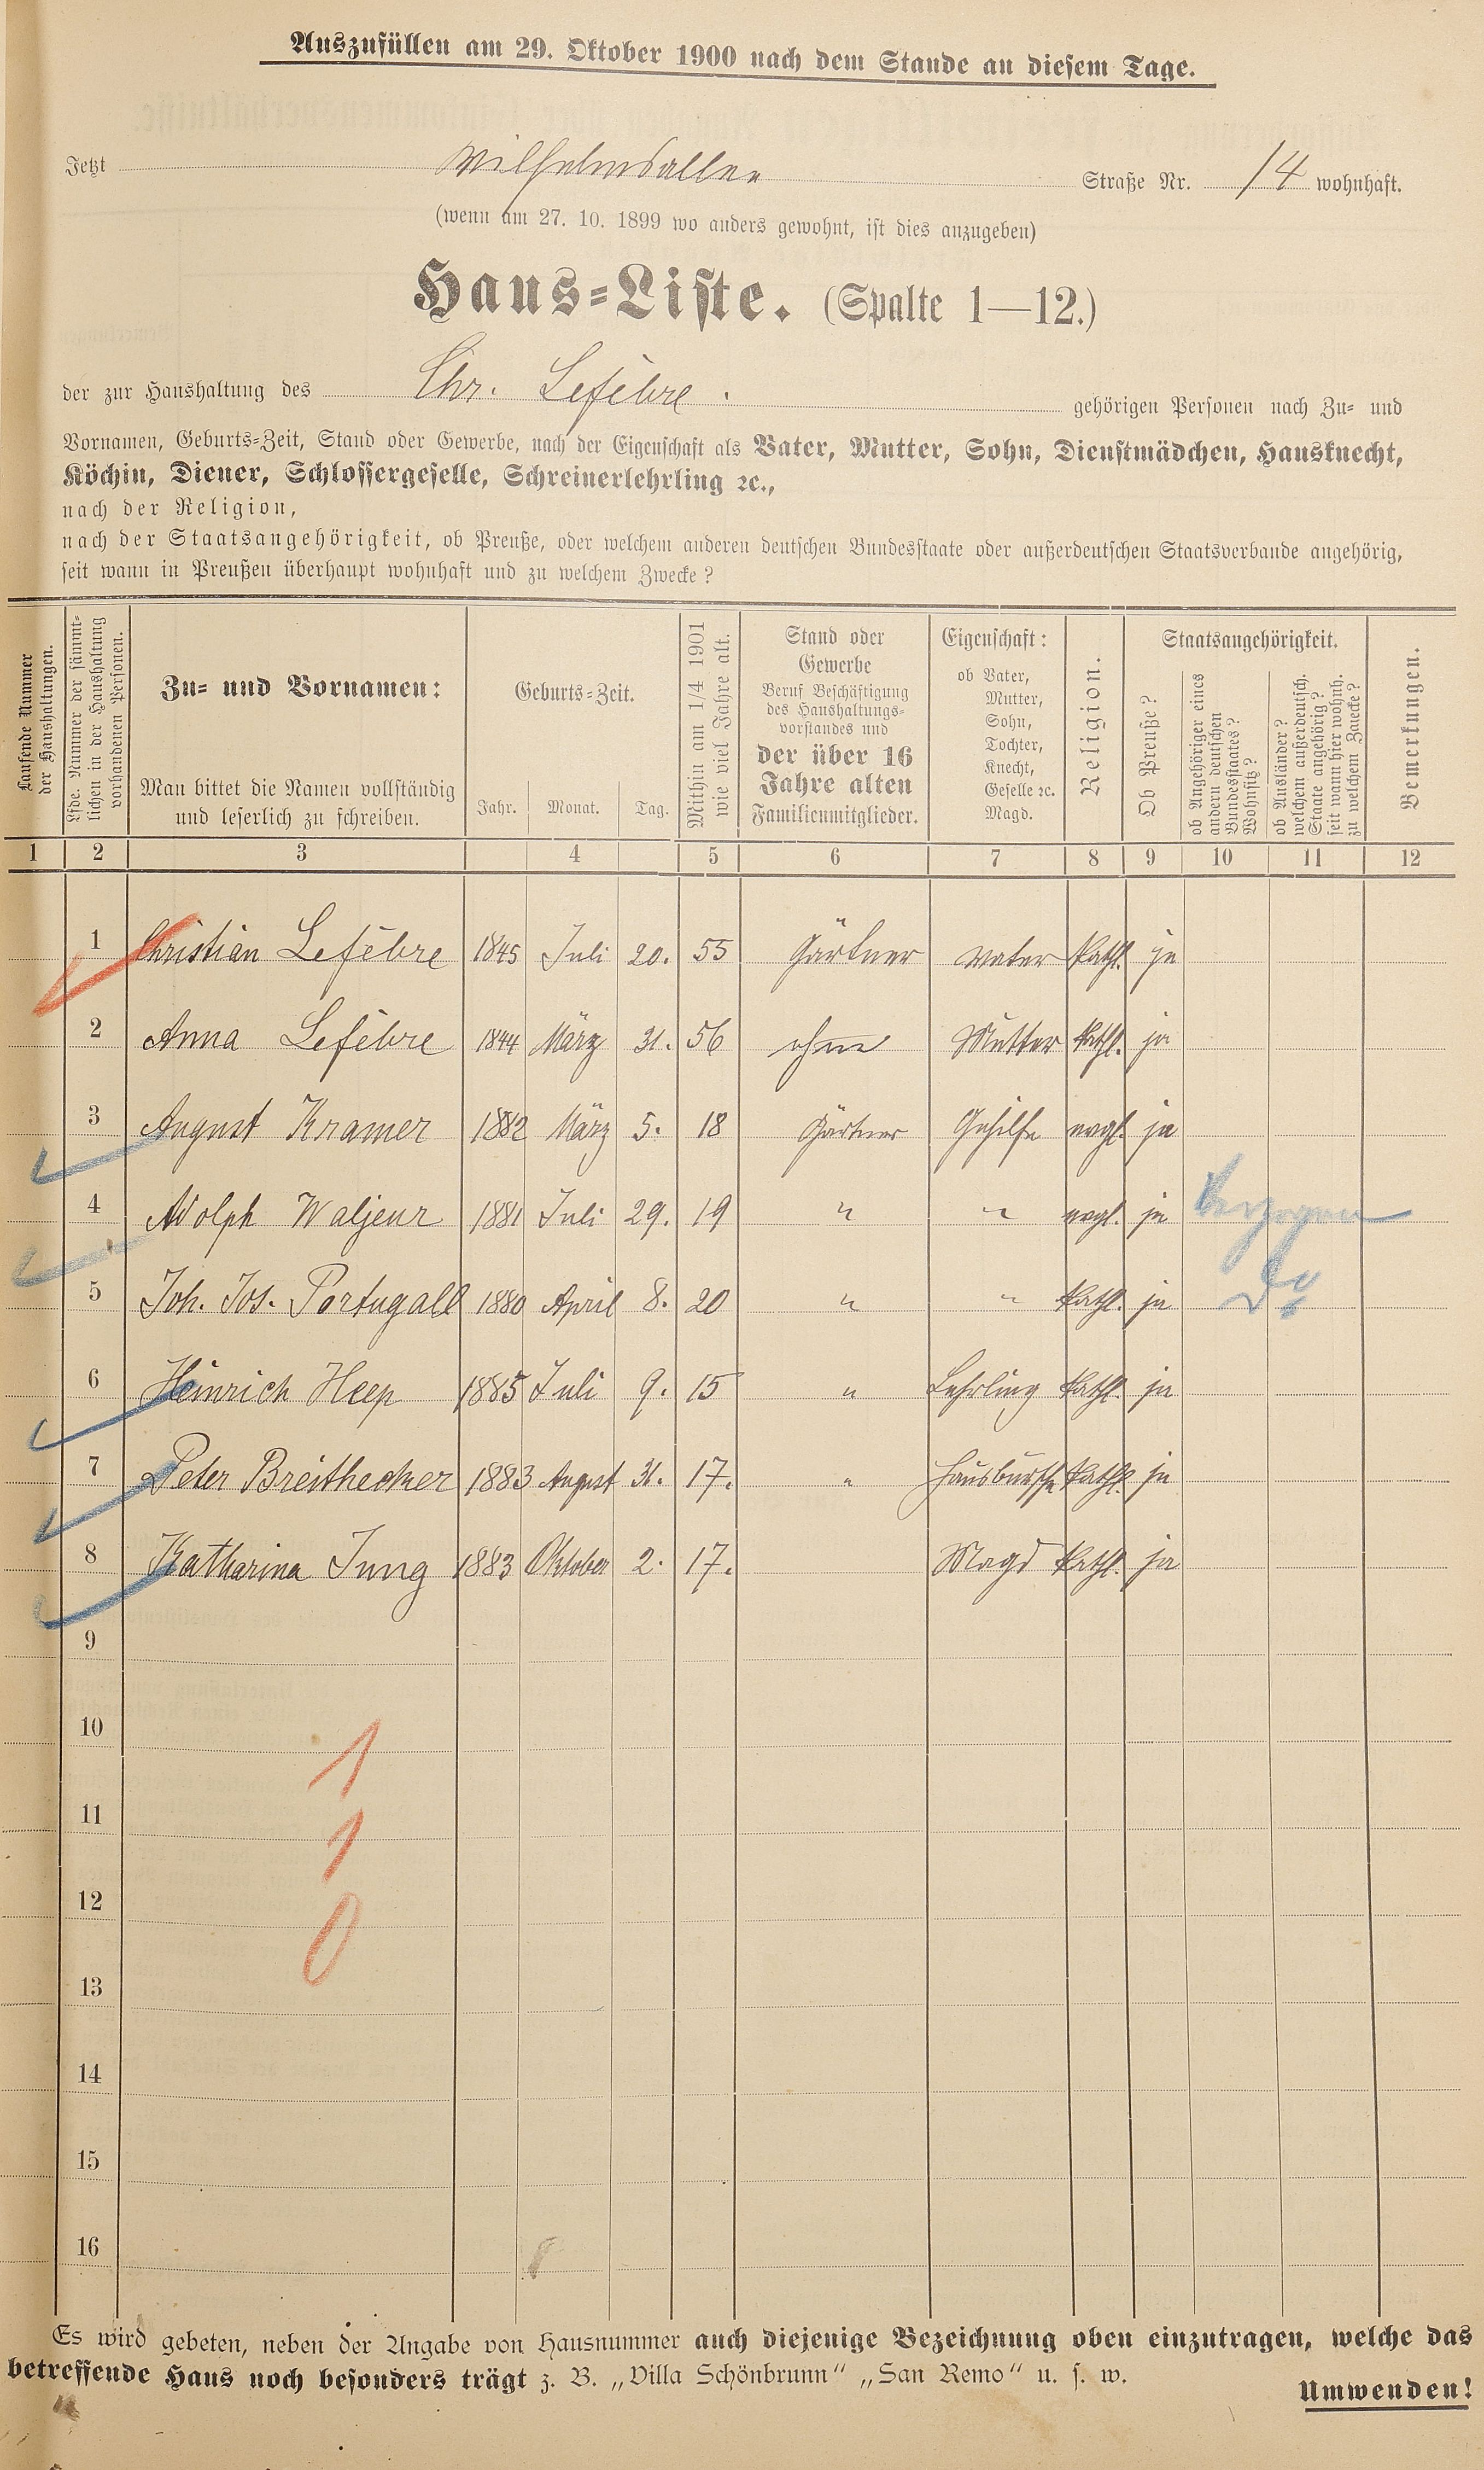 Auszufüllen am 29. Oktober 1900 nach dem Stande an diesem Tage.
Jetzt Wilhelmsallee Straße Nr. 14 wohnhaft.
(wenn am 27. 10. 1899 wo anders gewohnt, ist dies anzugeben)
Haus-Liste. (Spalte 1—12.)
der zur Haushaltung des Chr. Lefèbre. gehörigen Personen nach Zu- und
Vornamen, Geburts-Zeit, Stand oder Gewerbe, nach der Eigenschaft als Vater, Mutter, Sohn, Dienstmädchen, Hausknecht,
Köchin, Diener, Schlossergeselle, Schreinerlehrling ꝛc.,
nach der Religion,
nach der Staatsangehörigkeit, ob Preuße, oder welchem anderen deutschen Bundesstaate oder außerdeutschen Staatsverbande angehörig,
seit wann in Preußen überhaupt wohnhaft und zu welchem Zwecke?
Laufende Nummer
der Haushaltungen.
Lfde. Nummer der sämmt-
lichen in der Haushaltung
vorhandenen Personen.
Zu- und Vornamen:
Man bittet die Namen vollständig
und leserlich zu schreiben.
Geburts-Zeit.
Jahr. Monat. Tag.
Mithin am 1/4 1901
wie viel Jahre alt.
Stand oder
Gewerbe
Beruf Beschäftigung
des Haushaltungs-
vorstandes und
der über 16
Jahre alten
Familienmitglieder.
Eigenschaft:
ob Vater,
Mutter,
Sohn,
Tochter,
Knecht,
Geselle ꝛc.
Magd.
Religion.
Staatsangehörigkeit.
Ob Preuße?
ob Angehöriger eines
andern deutschen
Bundesstaates?
Wohnsitz?
ob Ausländer?
welchem außerdeutsch.
Staate angehörig?
seit wann hier wohnh.
zu welchem Zwecke?
Bemerkungen.
1 2 3 4 5 6 7 8 9 10 11 12
1 Christian Lefèbre 1845 Juli 20. 55 Gärtner Vater kath. ja
2 Anna Lefèbre 1844 März 31. 56 ohne Mutter kath. ja
3 August Kramer 1882 März 5. 18 Gärtner Gehilfe evgl. ja
4 Adolph Waljeur 1881 Juli 29. 19 " " evgl. ja verzogen
5 Joh. Jos. Portugall 1880 April 8. 20 " " kath. ja do
6 Heinrich Heep 1885 Juli 9. 15 " Lehrling kath. ja
7 Peter Breithecker 1883 August 31. 17. " Hausbursche kath. ja
8 Katharina Jung 1883 Oktober 2. 17. Magd kath. ja
9
10
1
11
1
12
0
13
14
15
16
Es wird gebeten, neben der Angabe von Hausnummer auch diejenige Bezeichnung oben einzutragen, welche das
betreffende Haus noch besonders trägt z. B. „Villa Schönbrunn“ „San Remo“ u. s. w.
Umwenden!